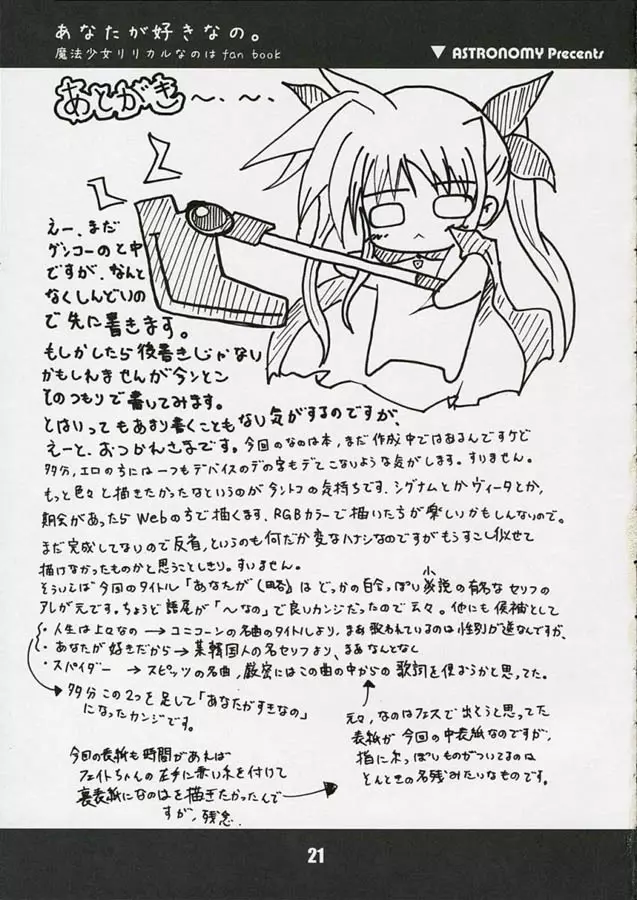 あなたが好きなの。
魔法少女リリカルなのは fan book
▼ ASTRONOMY Precents
あとがき〜、〜、
えー、まだ
ゲンコーのと中
ですが、なんと
なくしんどいの
で先に書きます。
もしかしたら後書きじゃない
かもしれませんが今ンとこ
そのつもりで書いてみます。
とはいってもあまり書くこともない気がするのですが、
えーと、おつかれさまです。今回のなのは本、まだ作成中ではあるんですけど
多分、エロのちにはーつもデバイスのデの字もでてこないような気がします。すいません。
もっと色々と描きたかったなというのが今ントコの気持ちです、シグナムとかヴィータとか、
期会があったらWebの方で描くます、RGBカラーで描いたちが楽しいかもしんないので。
まだ完成してないので反省、というのも何だか変なハナシなのですがもうすこし似せて
描けなかったものかと思うことしきり。すいません。
そういえば今回のタイトル「あなたが(略)」は どっかの百合っぽい小説の有名なセリフの
アレが元です。ちょうど語尾が「〜なの」で良いカンジだったので云々。他にも候補として
・人生は上々なの → ユニコーンの名曲のタイトルより、まあ歌われているのは性別が逆なんですが、
・あなたが好きだから → 某韓国人の名セリフより、まあなんとなく
・スパイダー → スピッツの名曲、厳密にはこの曲の中からの歌詞を使おうかと思ってた。
多分この2つを足して「あなたがすきなの」
になったカンジです。
元々、なのはフェスで出そうと思ってた
表紙が今回の中表紙なのですが、
指に糸っぽいものがついてるのは
そんときの名残みたいなものです。
今回の表紙も時間があれば
フェイトちゃんの左手に赤い糸を付けて
裏表紙になのはを描きたかったんで
すが、残念
21